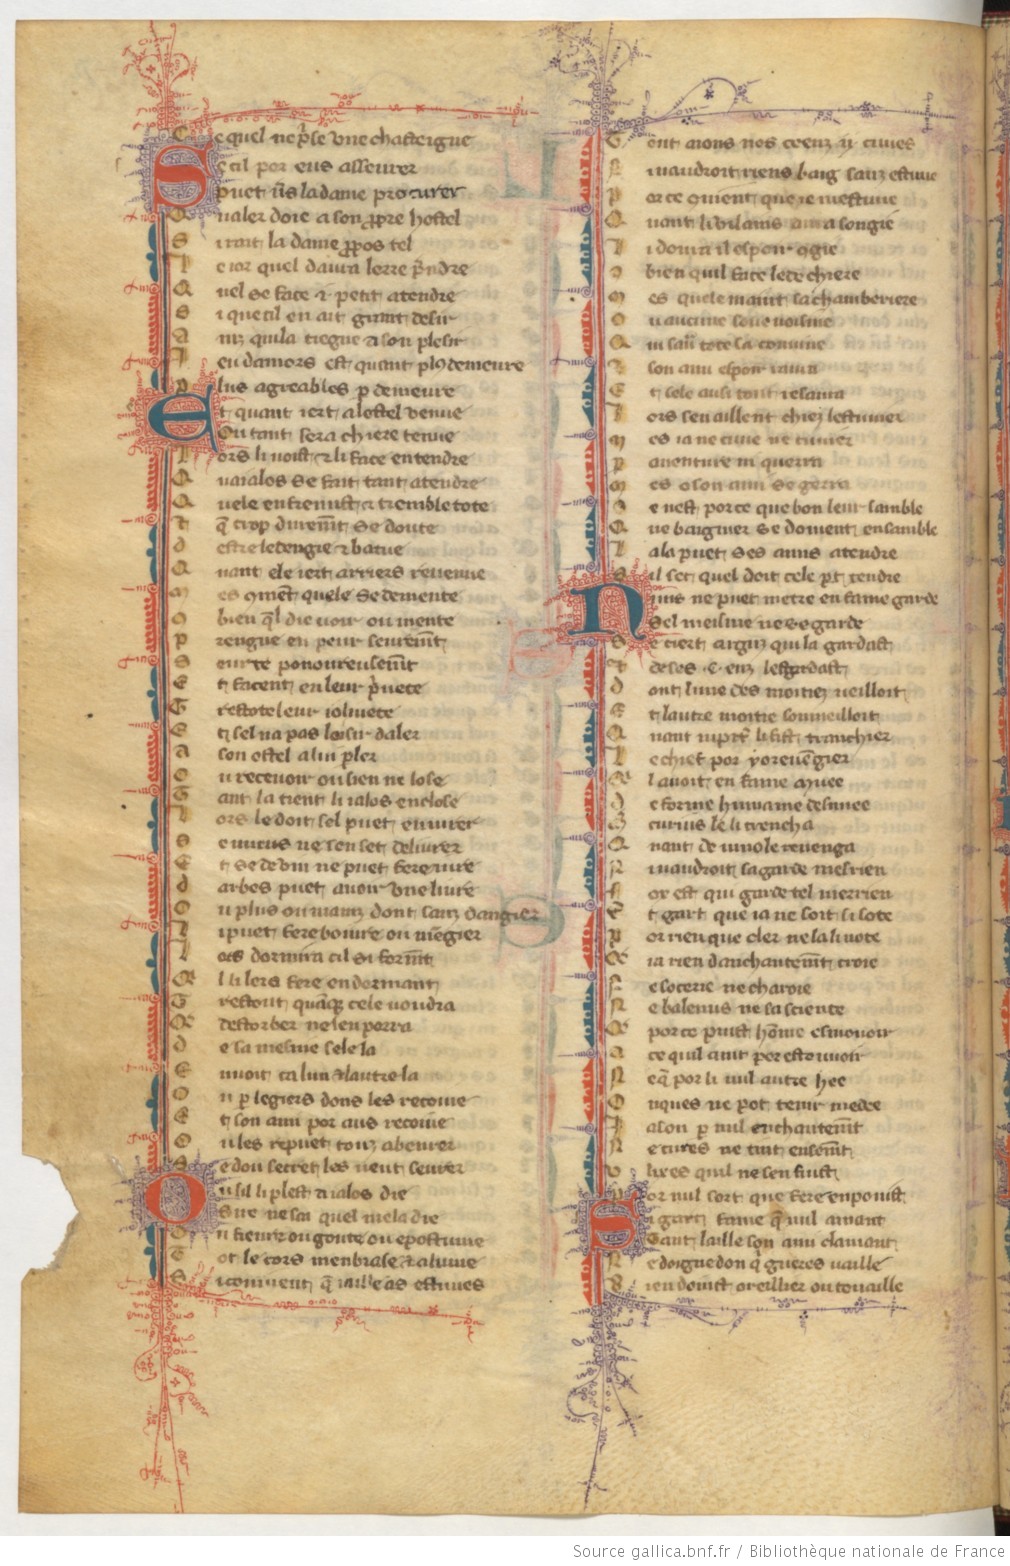 C e quel ne p̃se vne chasteigne
S e cil por eus asseurer
puet v̄s la dame procurer
Q ualer doie a son ꝓpre hostel
S irait la dame ꝓpos tel
L e ior quel daura lerre p̃ndre
Q uel se face .i. petit atendre
S i que cil en ait grant desir
a inz quila tiegne a son plesir
I eu damors est quant pl9 demeure
P lus agreables p demeure
E t quant iert a lostel venue
Qui tant sera chiere tenue
L ors li voist ⁊ li face entendre
Q uaialos se fait tant atendre
Q uele en fremist ⁊ tremble tote
T q̄ trop duremt̄ se doute
d estre ledengie ⁊ batue
Q uant ele iert arriers reuenue
m es 9ment quele se demente
o bien q̄l die uoir ou mente
p rengne en peur seuremt̄
S eurte poooureusemt̄
E t facent en leur p̃uete
T restote leur ioliuete
E t sel na pas loisir daler
a son ostel a lui pler
O u receuoir ou sien ne lose
T ant la tient li ialos enclose
L ors le doit sel puet enyurer
S e mieus ne sen set deliurer
E t se de vin ne puet fere yure
d arbes puet auoir vne liure
O u plus ou mainz dont sanz dangier
L i puet fere boiure ou mēgier
L ors dormira cil si formt̄
Q l li lera fere en dormant
T restout quāq; cele uoudra
Q destorber ne len porra
d e sa mesnie sele la
E nuoit ca lun ⁊ lautre la
O u p legiers dons les recoiue
E t son ami por aus recoiue
O u les repuet touz abeurer
S e dou secret les ueut seurer
O u sil li plest a ialos die
Sire ne sai quel mela die
O u fieure ou goute ou epostume
T ot le cors menbrase ⁊ alume
S i conuient q̄ iaille as estuues
T ont aions nos ceenz .ij. cuues
N i uaudroit riens baig sanz estuue
P or ce 9uient que ie mestuue
Q uant li vilains aura songie
L i donra il espoir 9gie
o bien quil face lede chiere
m es quele maint sa chamberiere
O u aucune soue uoisine
Q ui saū tote sa couuine
son ami espoir raura
E t cele ausi tout resaura
L ors sen aillent chiez lestuuier
m es ia ne cuue ne cuuier
P auenture ni querra
m es o son ami se gerra
S e nest por ce que bon leur samble
Q ue baignier se doiuent ensamble
L ala puet ses amis atendre
S il set quel doit cele pt tendre
N uis ne puet metre en fame garde
Sel meisme ne se garde
S e ciert argus qui la gardast
d e ses .c. euz lesgardast
d ont lune des moitiez ueilloit
E t lautre moitie someilloit
Q uant iupit̄ li fist tranchier
L e chief por yo reuēgier
Q lauoit en fame muee
d e forme humaine desnuee
m ercurius le li trencha
Q uant de iuno le reuenga
N i uaudroit sa garde mes rien
f ox est qui garde tel merrien
E t gart que ia ne soit si sote
P or rien que clerc ne lai li note
Q ia rien danchantemt̄ croie
N e sorcerie ne charoie
N e balenus ne sa science
N por ce puist hōme esmouoir
a ce quil aint por estouuoir
N eq̄ por li nul autre hee
O nques ne pot tenir medee
I ason p nul enchantemt̄
N e circes ne tint ensemt̄
V lixes quil ne sen fuist
P or nul sort que fere en poist
S i gart fame q̄ nul amant
Tant laille son ami clamant
N e doigne don q̄ gueres uaille
B ien doinst oreillier ou touaille
Source gallica.bnf.fr / Bibliothèque nationale de France